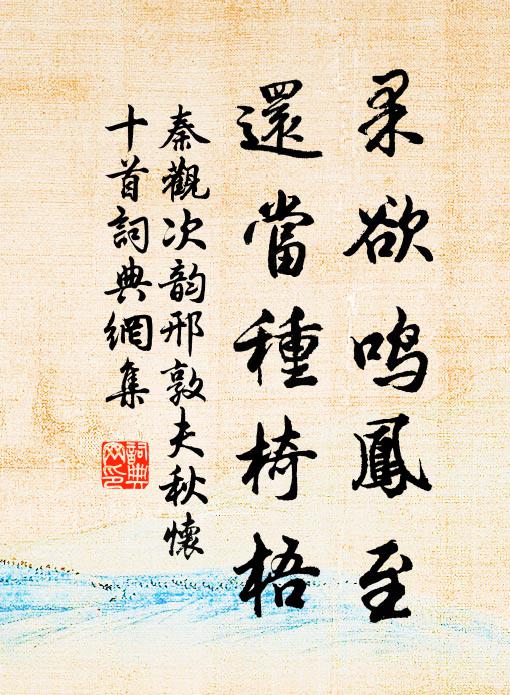 果欲鸣鳳至
還當種椅梧
秦觀次韵邢敦夫秋懷
十首詞典網集
詞典
网印